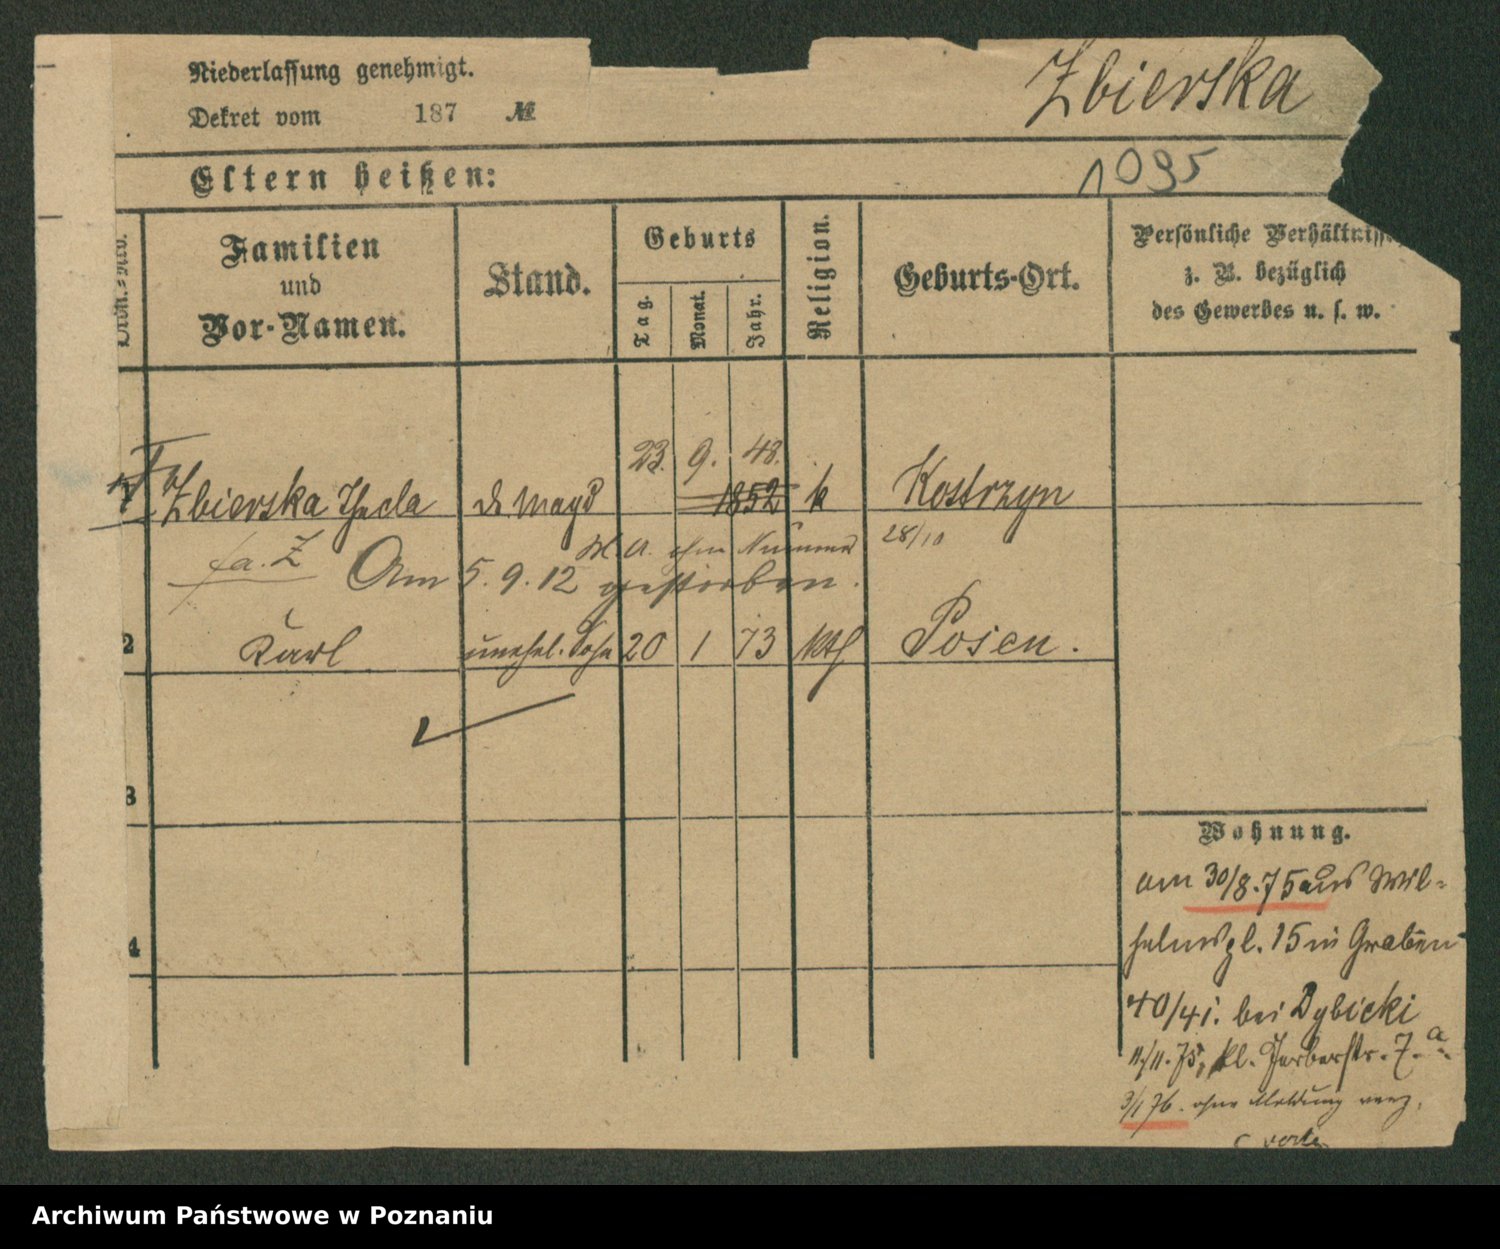 Niederlassung genehmigt.
Dekret vom 187 №
Zbierska
Eltern heißen:
1095
Ordn.-Nro.
Familien
und
Vor-Namen.
Stand.
Geburts
Tag.
Monat.
Jahr.
Religion.
Geburts-Ort.
Persönliche Verhältniss
z. B. bezüglich
des Gewerbes u. s. w.
23. 9. 48.
1 Zbierska Thecla d. Magd 1852 k Kostrzyn
M. A. ohne Nummer 28/10
fa. Z Am 5. 9. 12 gestorben.
2 Karl unehel. Sohn 20 1 73 kth Posen.
3
4
Wohnung.
am 30/8. 75 aus Wil-
helmspl. 15 in Graben
40/41. bei Dybicki
11/11. 75, kl. Gerberstr. 7.a
3/1 76. ohne Meldung verz.